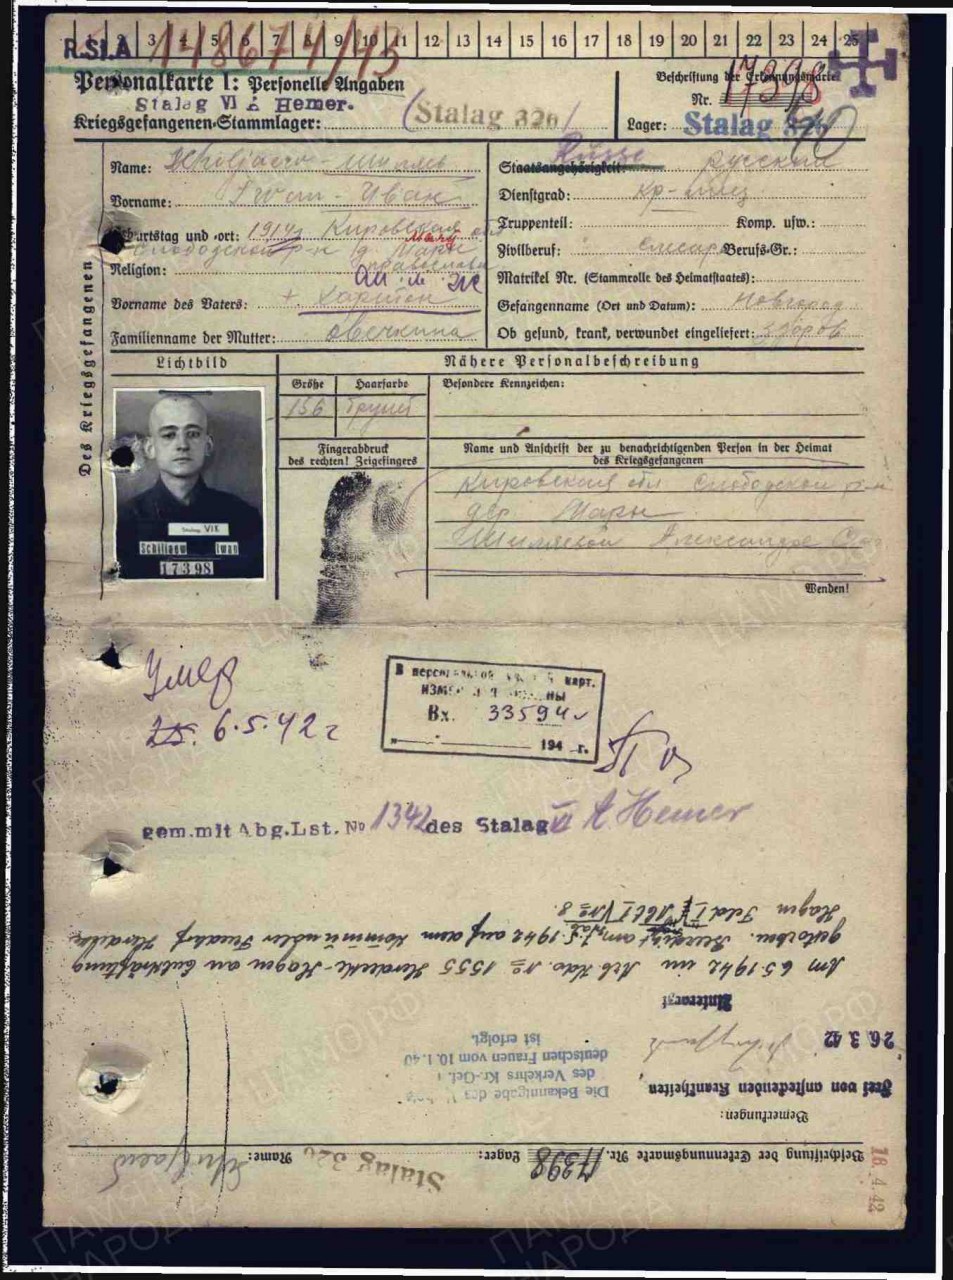 R.St.A 148674/43
1 2 3 4 5 6 7 8 9 10 11 12 13 14 15 16 17 18 19 20 21 22 23 24 25
Personalkarte I: Personelle Angaben
Stalag VI A Hemer.
Kriegsgefangenen-Stammlager: Stalag 326
Beschriftung der Erkennungsmarke
Nr. 17398
Lager: Stalag 326
Des Kriegsgefangenen
Name: Schiljaew -
Vorname: Iwan - Иван
Geburtstag und -ort: 1914г Кировская обл
Слободской р-н д.
Religion:
Vorname des Vaters: + Харитон
Familienname der Mutter: Овечкина
Staatsangehörigkeit: Русский
Dienstgrad: кр-
Truppenteil: Komp. usw.:
Zivilberuf: слесарь Berufs-Gr.:
Matrikel Nr. (Stammrolle des Heimatstaates):
Gefangenname (Ort und Datum): Новгород
Ob gesund, krank, verwundet eingeliefert: здоров
Lichtbild
Nähere Personalbeschreibung
Größe Haarfarbe Besondere Kennzeichen:
156
Fingerabdruck
des rechten! Zeigefingers
Name und Anschrift der zu benachrichtigenden Person in der Heimat
des Kriegsgefangenen
Кировская обл Слободской р-н
дер.
Александре
Wenden!
Stalag VIK
Schiljaew Iwan
17398
Умер
6.5.42 г
В персональной карт.
Вх. 33594
194 г.
gem.mit Abg.Lst. № 1342 des Stalag VI A Hemer
Am 6.5.1942 im Arb. Kdo. № 1555 Herdecke-Hagen an Entkräftung
gestorben. Beerdigt am 7.5.1942 auf dem
Hagen Feld № 8.
Unterarzt
26.3.42
Frei von ansteckenden Krankheiten
Die Bekanntgabe des
des Verkehrs Kr.-Gef.
deutschen Frauen vom 10.1.40
ist erfolgt.
Bemerkungen:
Beschriftung der Erkennungsmarke Nr. 17398 Lager: Stalag 326 Name: Schiljaew
16.4.42
ПАМЯТЬ НАРОДА
ЦАМО.РФ